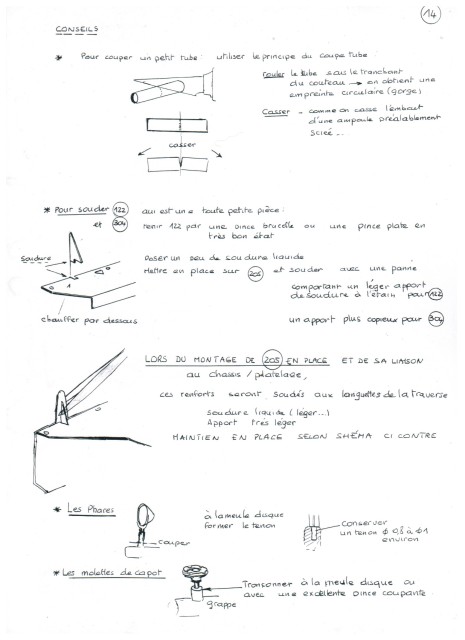 14
CONSEILS
* Pour couper un petit tube : utiliser le principe du coupe tube
Rouler le tube sous le tranchant
du couteau → on obtient une
empreinte circulaire (gorge)
Casser - comme on casse l'embout
d'une ampoule préalablement
sciée...
casser
* Pour souder 122 qui est une toute petite pièce :
et 304 tenir 122 par une pince brucelle ou une pince plate en
très bon état
soudure
Poser un peu de soudure liquide
Mettre en place sur 205 et souder avec une panne
comportant un léger apport
de soudure à l'étain pour 122
chauffer par dessous
un apport plus copieux pour 304
LORS DU MONTAGE DE 205 EN PLACE ET DE SA LIAISON
au chassis / platelage,
ces renforts seront soudés aux languettes de la traverse
soudure liquide (léger...)
Apport très léger
MAINTIEN EN PLACE SELON SHÉMA CI CONTRE
* Les Phares
à la meule disque
former le tenon
couper
Conserver
un tenon φ 0,8 à φ1
environ
* Les molettes de capot
Tronçonner à la meule disque ou
avec une excellente pince coupante.
grappe